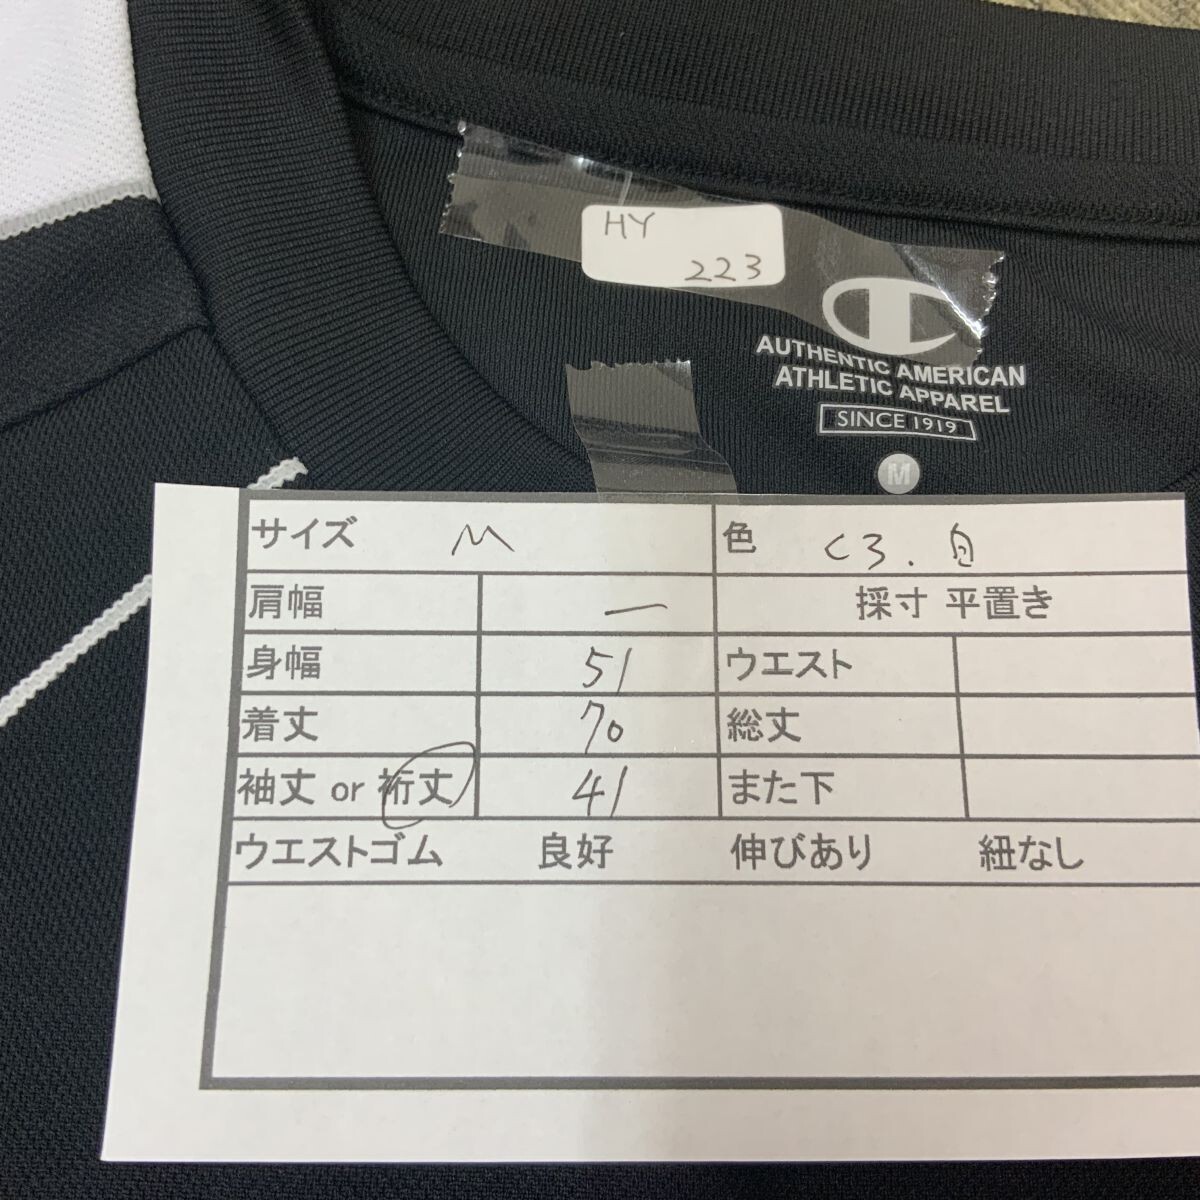 HY
223
AUTHENTIC AMERICAN
ATHLETIC APPAREL
SINCE 1919
M
サイズ M 色 くろ.白
肩幅 ー 採寸 平置き
身幅 51 ウエスト
着丈 70 総丈
袖丈 or 裄丈 41 また下
ウエストゴム 良好 伸びあり 紐なし